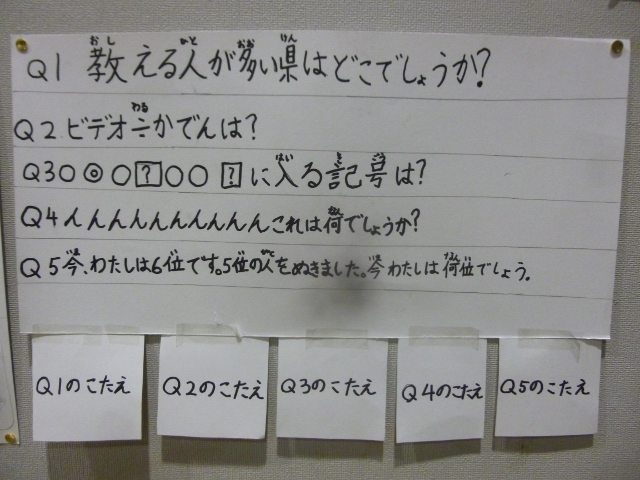 Q1 教える人が多い県はどこでしょうか?
Q2 ビデオ÷かでんは?
Q3 ○◎○?○○ ?に入る記号は?
Q4 んんんんんんんんんんこれは荷でしょうか?
Q5 今、わたしは6位です。5位の人をぬきました。今わたしは荷位でしょう。
Q1のこたえ
Q2のこたえ
Q3のこたえ
Q4のこたえ
Q5のこたえ